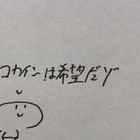 コカインは希望だゾ